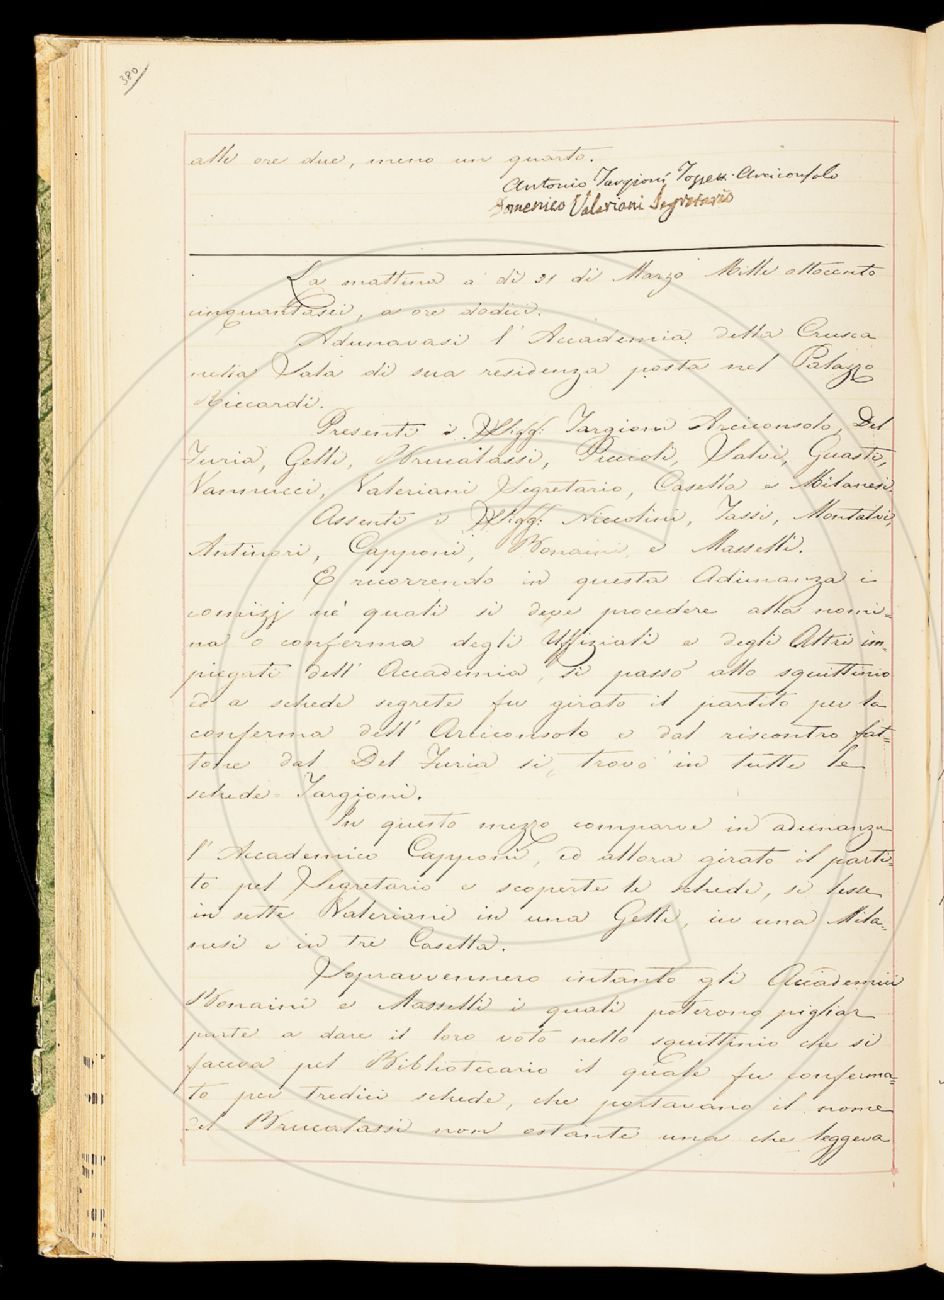 380
alle ore due, meno un quarto.
Antonio Targioni Tozzetti Arciconsolo
Domenico Valeriani Segretario
La mattina a dì 31 di Marzo Mille ottocento
cinquantasei, a ore dodici.
Adunavasi l'Accademia della Crusca
nella Sala di sua residenza posta nel Palazzo
Riccardi.
Presenti i SSigg: Targioni Arciconsolo, Del
Furia, Gelli, Brucalassi, Piccioli, Salvi, Guasti,
Vannucci, Valeriani Segretario, Casella e Milanesi.
Assenti i SSigg: Niccolini, Tassi, Montalvi,
Antinori, Capponi, Bonaini, e Masselli.
E ricorrendo in questa Adunanza i
comizj ne' quali si deve procedere alla nomi-
na o conferma degli Uffiziali e degli Altri im-
piegati dell'Accademia, si passò allo squittinio
ed a schede segrete fu girato il partito per la
conferma dell'Arciconsolo e dal riscontro fat-
tone dal Del Furia si trovò in tutte le
schede = Targioni.
In questo mezzo comparve in adunanza
l'Accademico Capponi, ed allora girato il parti-
to pel Segretario e scoperte le schede, si lesse
in sette Valeriani in una Gelli, in una Mila-
nesi e in tre Casella.
Sopravvennero intanto gli Accademici
Bonaini e Masselli i quali poterono pigliar
parte a dare il loro voto nello squittinio che si
faceva pel Bibliotecario il quale fu conferma-
to per tredici schede, che portavano il nome
del Brucalassi non ostante una che leggeva